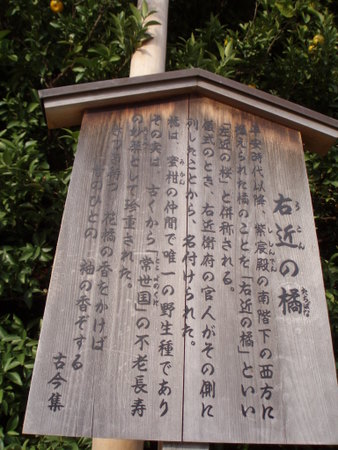 右近の橘
うこん
たちばな
平安時代以降、紫宸殿の南階下の西方に
ししんでん
植えられた橘のことを「右近の橘」といい
「左近の桜」と併称される。
儀式のとき、右近衛府の官人がその側に
列したことから、名付けられた。
橘は、蜜柑の仲間で唯一の野生種であり
みかん
その実は、古くから「常世国」の不老長寿
の妙薬として珍重された。
花橘の香をかげば
ひとの 袖の香ぞする
古今集